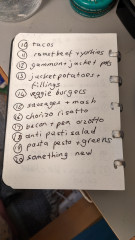 10 tacos
11 roast beef + yorkies
12 gammon + jacket pots
13 jacket potatoes +
fillings
14 veggie burgers
15 sausages + mash
16 chorizo risotto
17 bacon + pea orzotto
18 anti pasti salad
19 pasta pesto + greens
20 something new